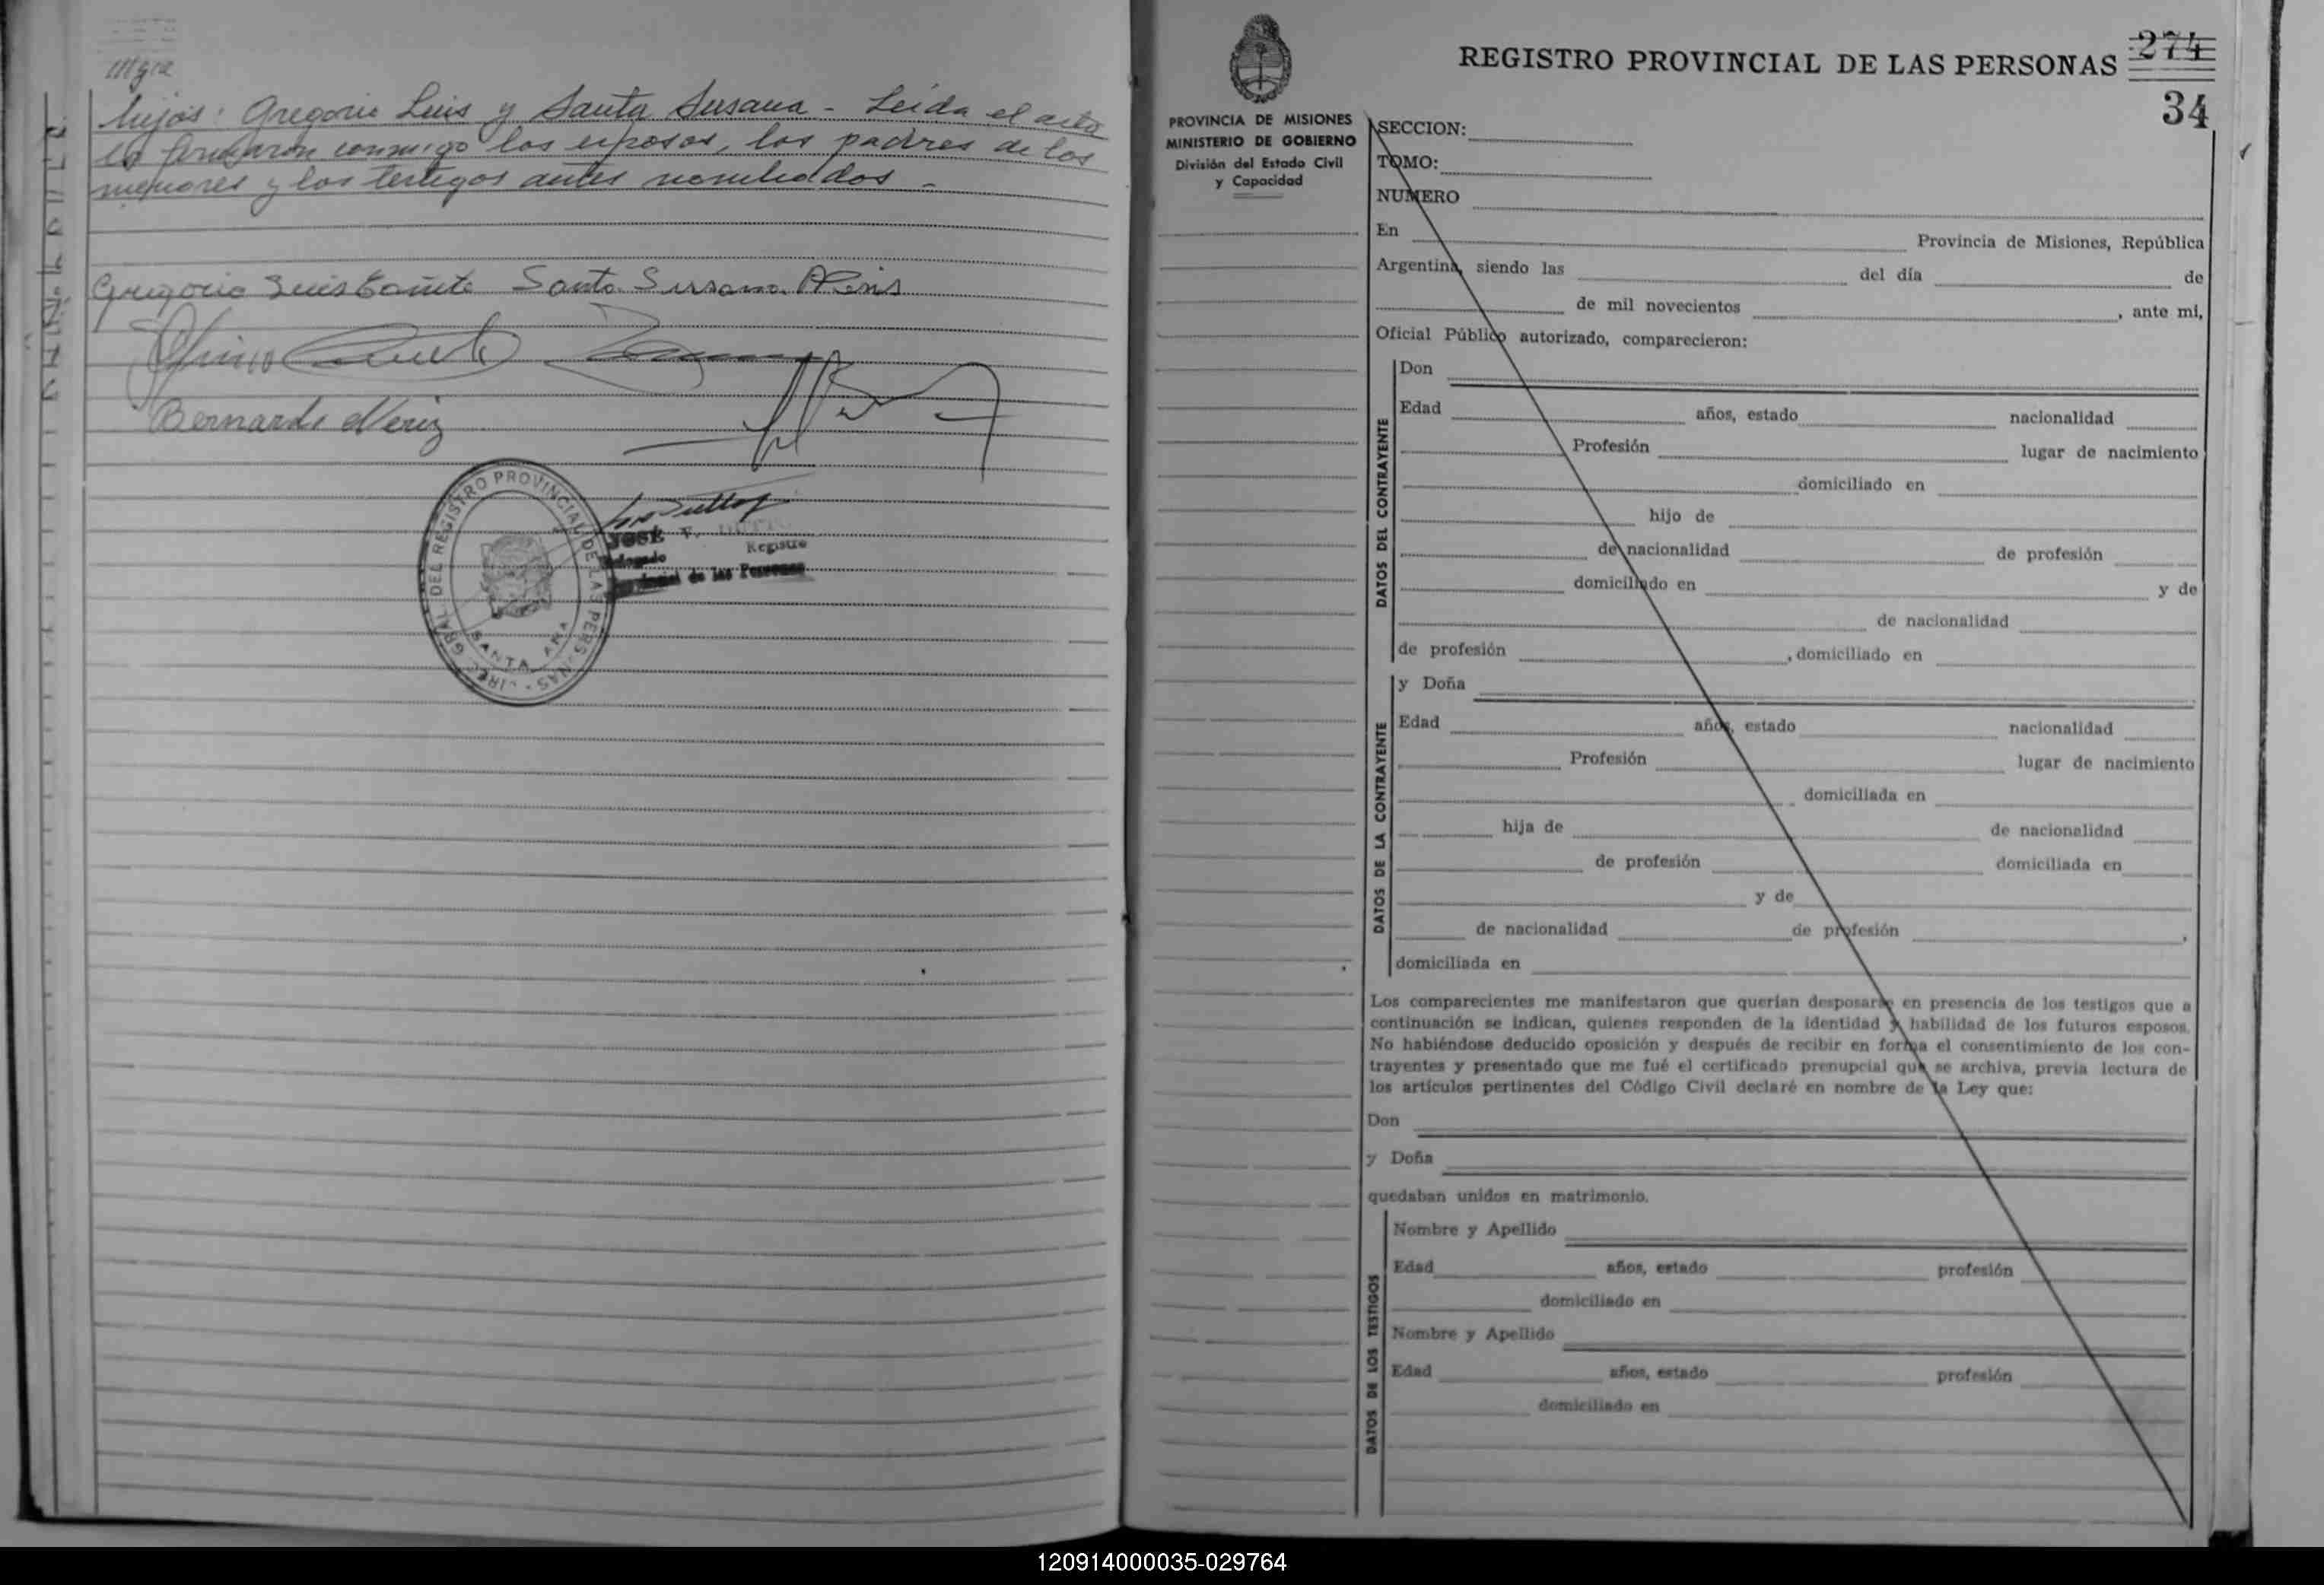 hijos: Gregorio Luis y Santa Susana - Leída el acta
la firmaron conmigo los esposos, los padres de los
menores y los testigos antes nombrados -
Gregorio Luis Cañete Santa Susana
Bernardo Neriz
DIREC. GRAL. DEL REGISTRO PROVINCIAL DE LAS PERSONAS - SANTA ANA
JOSE F.
Delegado Registro
Provincial de las Personas
REGISTRO PROVINCIAL DE LAS PERSONAS
274
34
PROVINCIA DE MISIONES
MINISTERIO DE GOBIERNO
División del Estado Civil
y Capacidad
SECCION:
TOMO:
NUMERO
En Provincia de Misiones, República
Argentina, siendo las del día de
de mil novecientos , ante mi,
Oficial Público autorizado, comparecieron:
DATOS DEL CONTRAYENTE
Don
Edad años, estado nacionalidad
Profesión lugar de nacimiento
domiciliado en
hijo de
de nacionalidad de profesión
domiciliado en y de
de nacionalidad
de profesión , domiciliado en
DATOS DE LA CONTRAYENTE
y Doña
Edad años, estado nacionalidad
Profesión lugar de nacimiento
domiciliada en
hija de de nacionalidad
de profesión domiciliada en
y de
de nacionalidad de profesión ,
domiciliada en
Los comparecientes me manifestaron que querían desposarse en presencia de los testigos que a
continuación se indican, quienes responden de la identidad y habilidad de los futuros esposos.
No habiéndose deducido oposición y después de recibir en forma el consentimiento de los con-
trayentes y presentado que me fué el certificado prenupcial que se archiva, previa lectura de
los artículos pertinentes del Código Civil declaré en nombre de la Ley que:
Don
y Doña
quedaban unidos en matrimonio.
DATOS DE LOS TESTIGOS
Nombre y Apellido
Edad años, estado profesión
domiciliado en
Nombre y Apellido
Edad años, estado profesión
domiciliado en
120914000035-029764